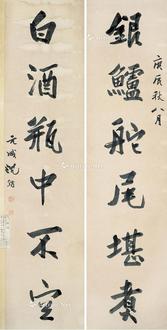 庚辰秋八月
銀鱸舵尾堪煮
白酒瓶中不空